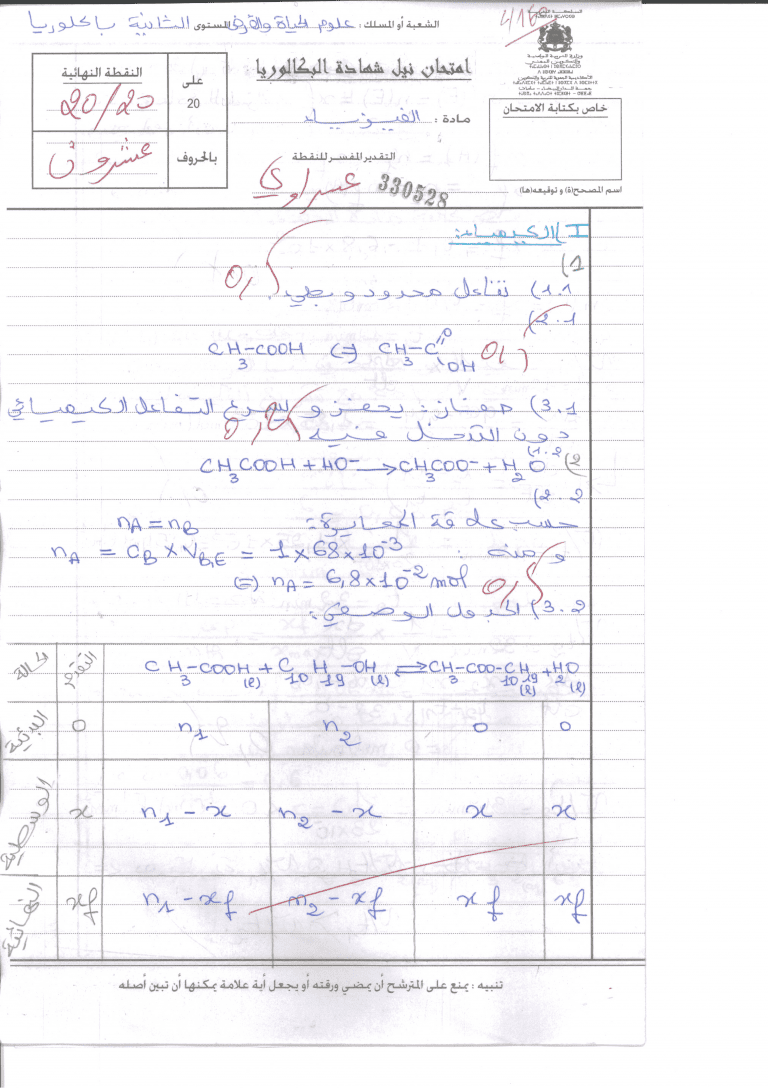 الشعبة أو المسلك : علوم الحياة والأرض المستوى الثانية باكلوريا
امتحان نيل شهادة البكالوريا
مادة : الفيزياء
خاص بكتابة الامتحان
النقطة النهائية
على
20
20/20
بالحروف
عشرون
التقدير المفسر للنقطة
330528
اسم المصحح(ة) و توقيعه(ها) :
I) الكيمياء:
(1
1.1) تفاعل محدود وبطيء. 0,5
2.1)
CH3-COOH (=) CH3-C O OH
3.1) حفاز: يحفز و يسرع التفاعل الكيميائي
دون التدخل فيه
2) 1.2)
CH3COOH + HO- → CH3COO- + H2O
2.2)
حسب علاقة المعايرة: nA = nB
ومنه : nA = CB × VB,E = 1 × 68 × 10-3
(=) nA = 6,8 × 10-2 mol 0,5
3.2) الجدول الوصفي:
الحالة التقدم CH3-COOH(l) + C10H19-OH(l) ⇌ CH3-COO-C10H19(l) + H2O(l)
البدئية 0 n1 n2 0 0
الوسطية x n1 - x n2 - x x x
النهائية xf n1 - xf n2 - xf xf xf
تنبيه : يمنع على المترشح أن يمضي ورقته أو يجعل أية علامة يمكنها أن تبين أصله